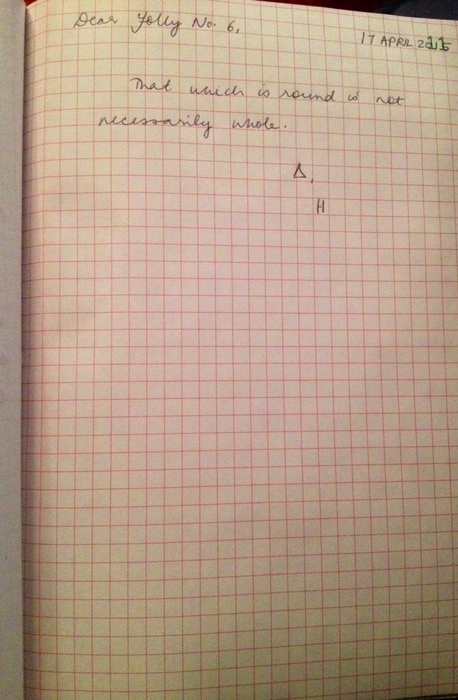 Dear Jolly No. 6,
17 APRIL 2015
That which is round is not
necessarily whole.
Δ,
H